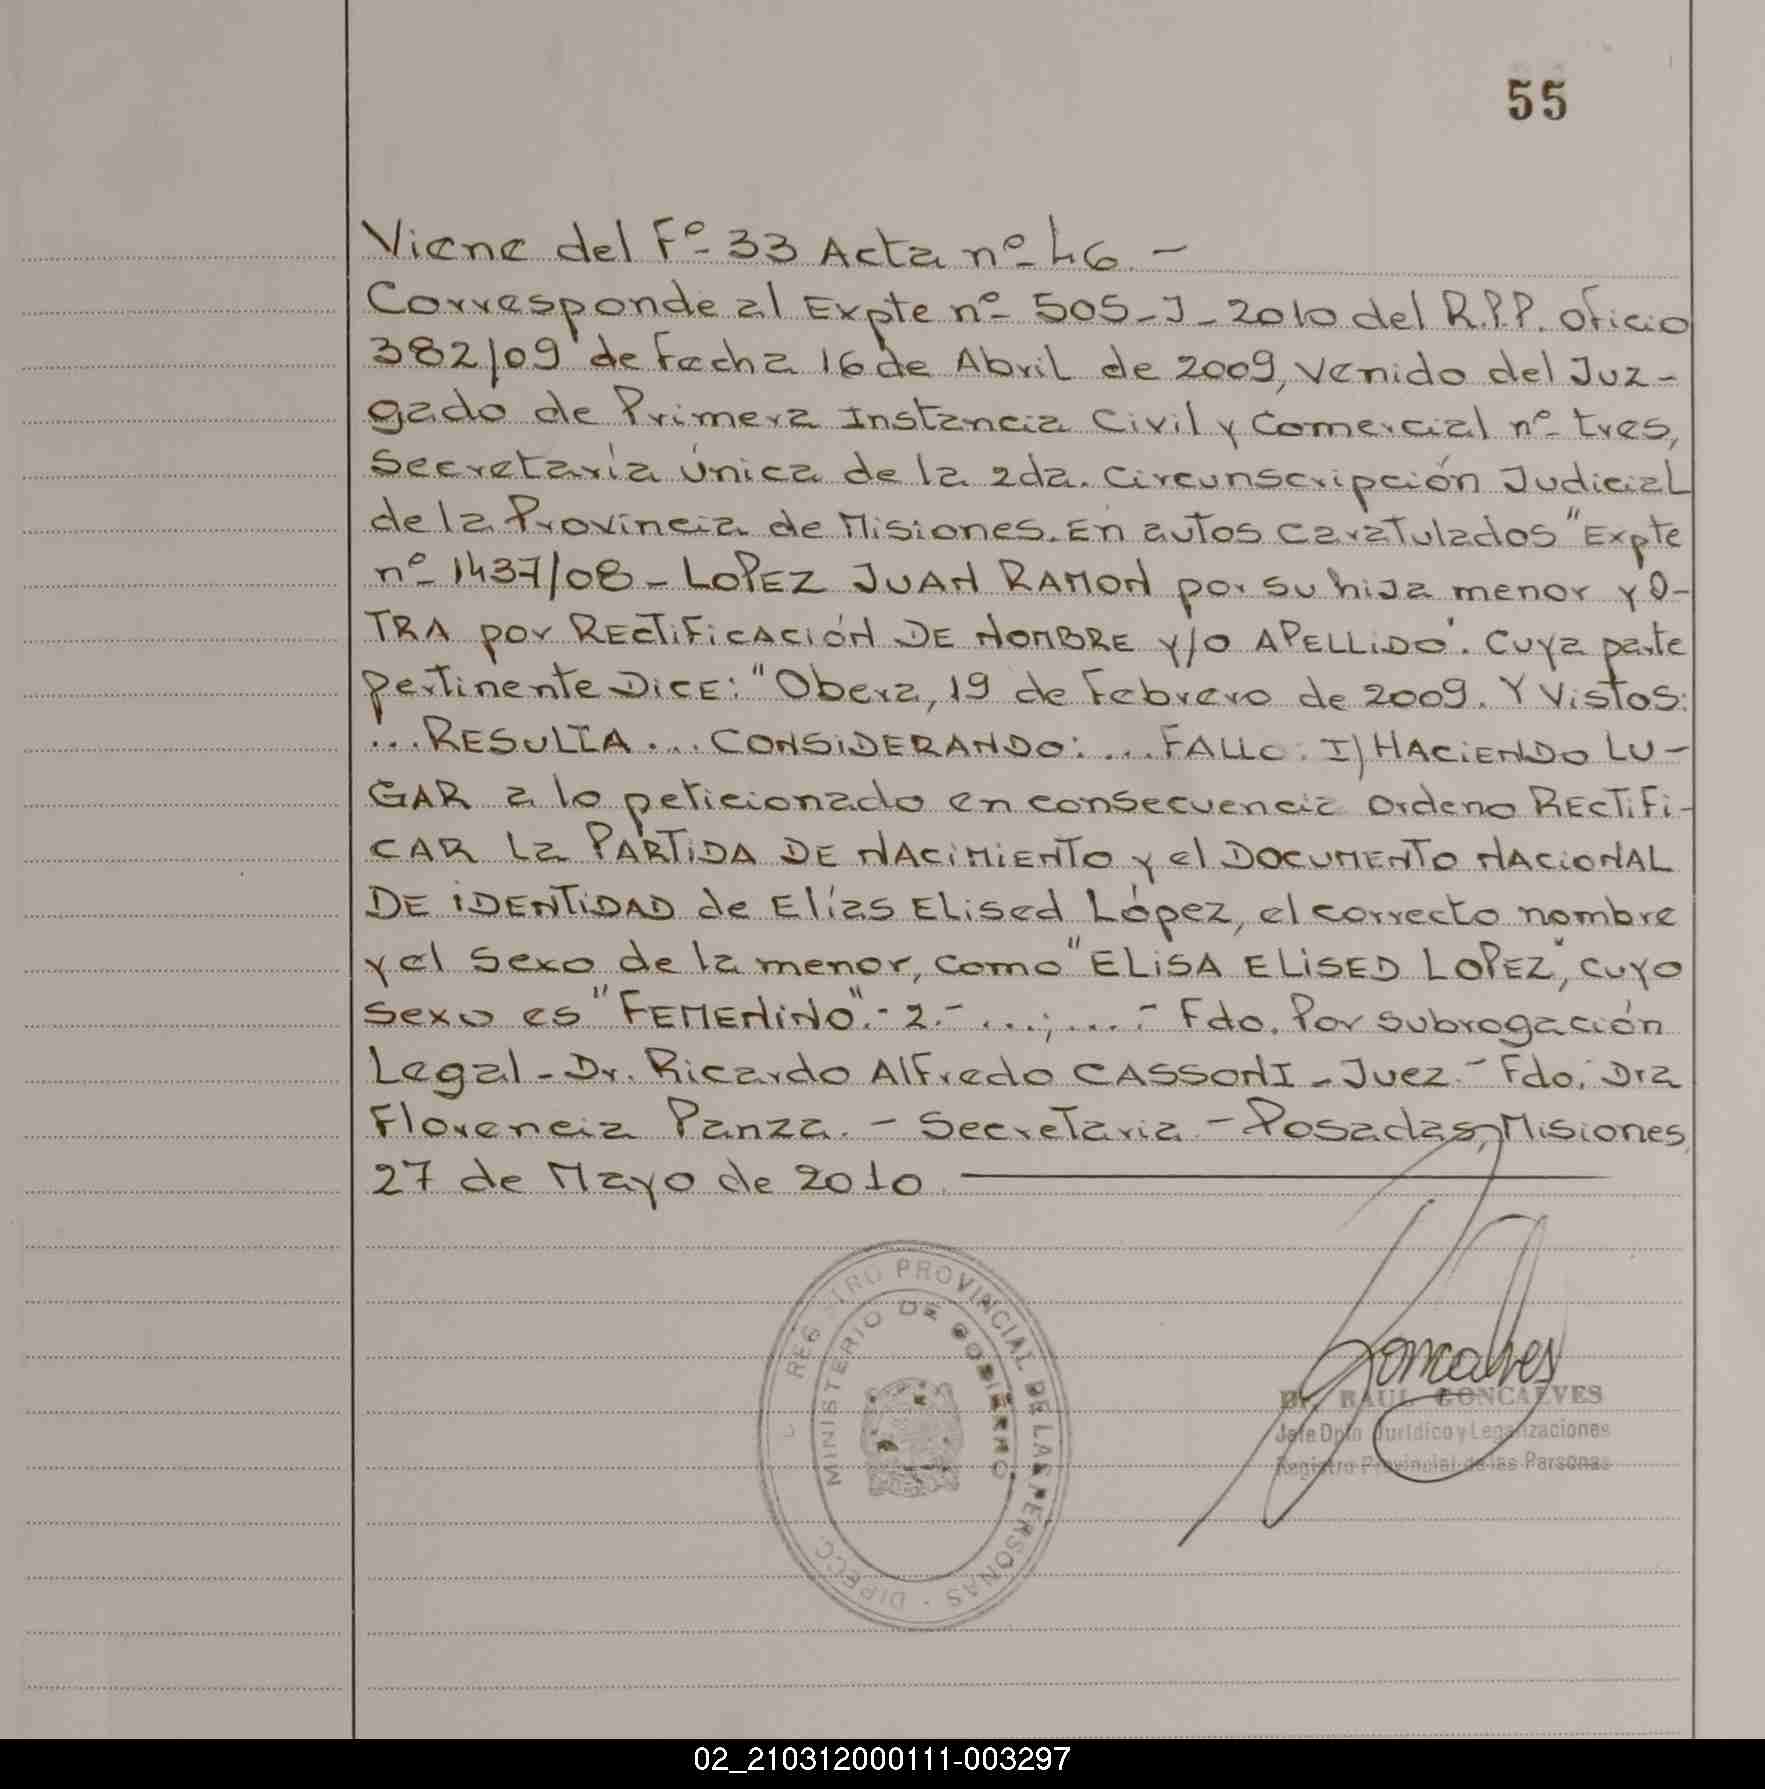 55
Viene del Fº 33 Acta nº 46. -
Corresponde al Expte nº 505-J-2010 del R.P.P. Oficio
382/09 de Fecha 16 de Abril de 2009, venido del Juz-
gado de Primera Instancia Civil y Comercial nº tres,
Secretaría Única de la 2da. Circunscripción Judicial
de la Provincia de Misiones. En autos caratulados "Expte
nº 1437/08 - LOPEZ JUAN RAMON por su hija menor y O-
TRA por RECTIFICACIÓN DE NOMBRE Y/O APELLIDO". Cuya parte
pertinente DICE: "Obera, 19 de Febrero de 2009. Y Vistos:
...RESULTA... CONSIDERANDO: ... FALLO: I) HACIENDO LU-
GAR a lo peticionado en consecuencia Ordeno RECTIFI-
CAR La PARTIDA DE NACIMIENTO y el DOCUMENTO NACIONAL
DE IDENTIDAD de Elías Elised López, el correcto nombre
y el sexo de la menor, como "ELISA ELISED LOPEZ", cuyo
sexo es "FEMENINO".- 2.- ...;....- Fdo. Por subrogación
Legal - Dr. Ricardo Alfredo CASSONI - Juez.- Fdo. Dra
Florencia Panza. - Secretaria - Posadas, Misiones,
27 de Mayo de 2010.
REGISTRO PROVINCIAL DE LAS PERSONAS · DIPECC
MINISTERIO DE GOBIERNO
Goncalves
Dr. RAUL GONCALVES
Jefe Dpto Jurídico y Legalizaciones
Registro Provincial de las Personas
02_210312000111-003297